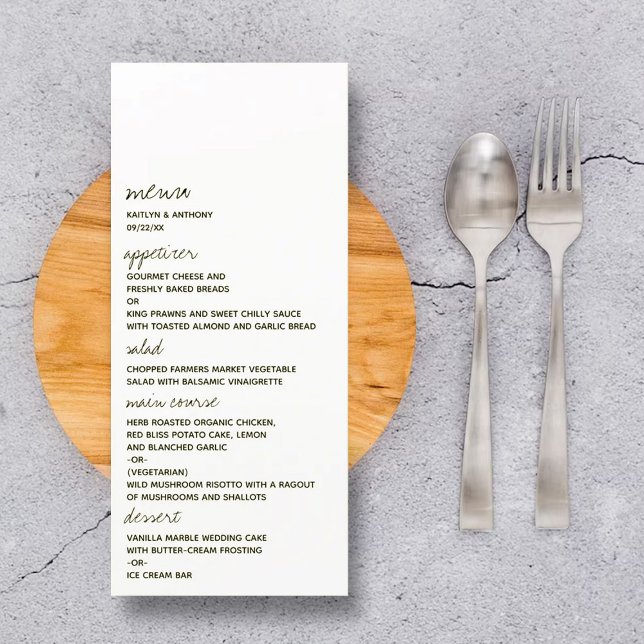 menu
KAITLYN & ANTHONY
09/22/XX
appetizer
GOURMET CHEESE AND
FRESHLY BAKED BREADS
OR
KING PRAWNS AND SWEET CHILLY SAUCE
WITH TOASTED ALMOND AND GARLIC BREAD
salad
CHOPPED FARMERS MARKET VEGETABLE
SALAD WITH BALSAMIC VINAIGRETTE
main course
HERB ROASTED ORGANIC CHICKEN,
RED BLISS POTATO CAKE, LEMON
AND BLANCHED GARLIC
-OR-
(VEGETARIAN)
WILD MUSHROOM RISOTTO WITH A RAGOUT
OF MUSHROOMS AND SHALLOTS
dessert
VANILLA MARBLE WEDDING CAKE
WITH BUTTER-CREAM FROSTING
-OR-
ICE CREAM BAR